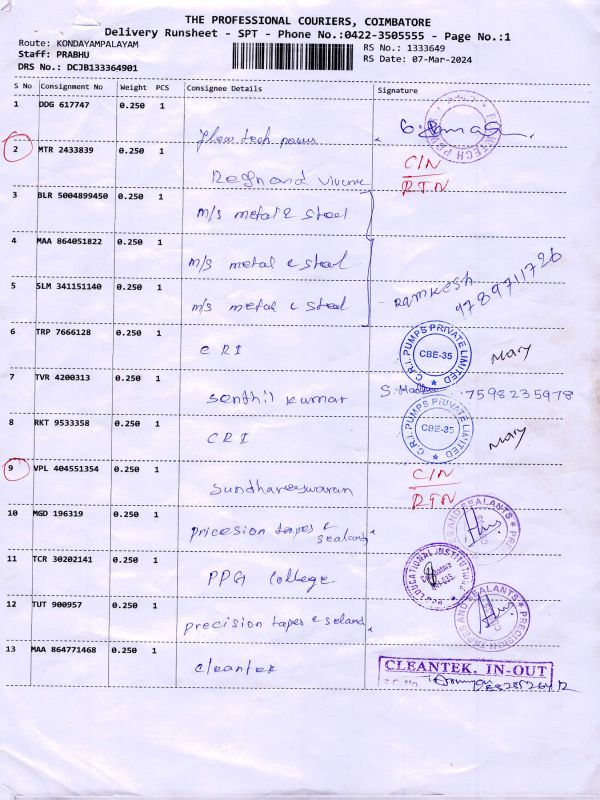 THE PROFESSIONAL COURIERS, COIMBATORE
Delivery Runsheet - SPT - Phone No.:0422-3505555 - Page No.:1
Route: KONDAYAMPALAYAM
Staff: PRABHU
DRS No.: DCJB133364901
RS No.: 1333649
RS Date: 07-Mar-2024
S No Consignment No Weight PCS Consignee Details Signature
1 DDG 617747 0.250 1
2 MTR 2433839 0.250 1 C/N RTN
3 BLR 5004899450 0.250 1 m/s metal & steel
4 MAA 864051822 0.250 1 m/s metal & steel
5 SLM 341151140 0.250 1 m/s metal & steel Ramkesh 9789711726
6 TRP 7666128 0.250 1 CRI C.R.I. PUMPS PRIVATE LIMITED CBE-35 Mary
7 TVR 4200313 0.250 1 Senthil kumar 7598235978
8 RKT 9533358 0.250 1 CRI C.R.I. PUMPS PRIVATE LIMITED CBE-35 Mary
9 VPL 404551354 0.250 1 Sundhareswaran C/N RTN
10 MGD 196319 0.250 1 pricesion tapes & sealand
11 TCR 30202141 0.250 1 PPG College
12 TUT 900957 0.250 1 precision tapes & seland
13 MAA 864771468 0.250 1 cleantek CLEANTEK. IN-OUT